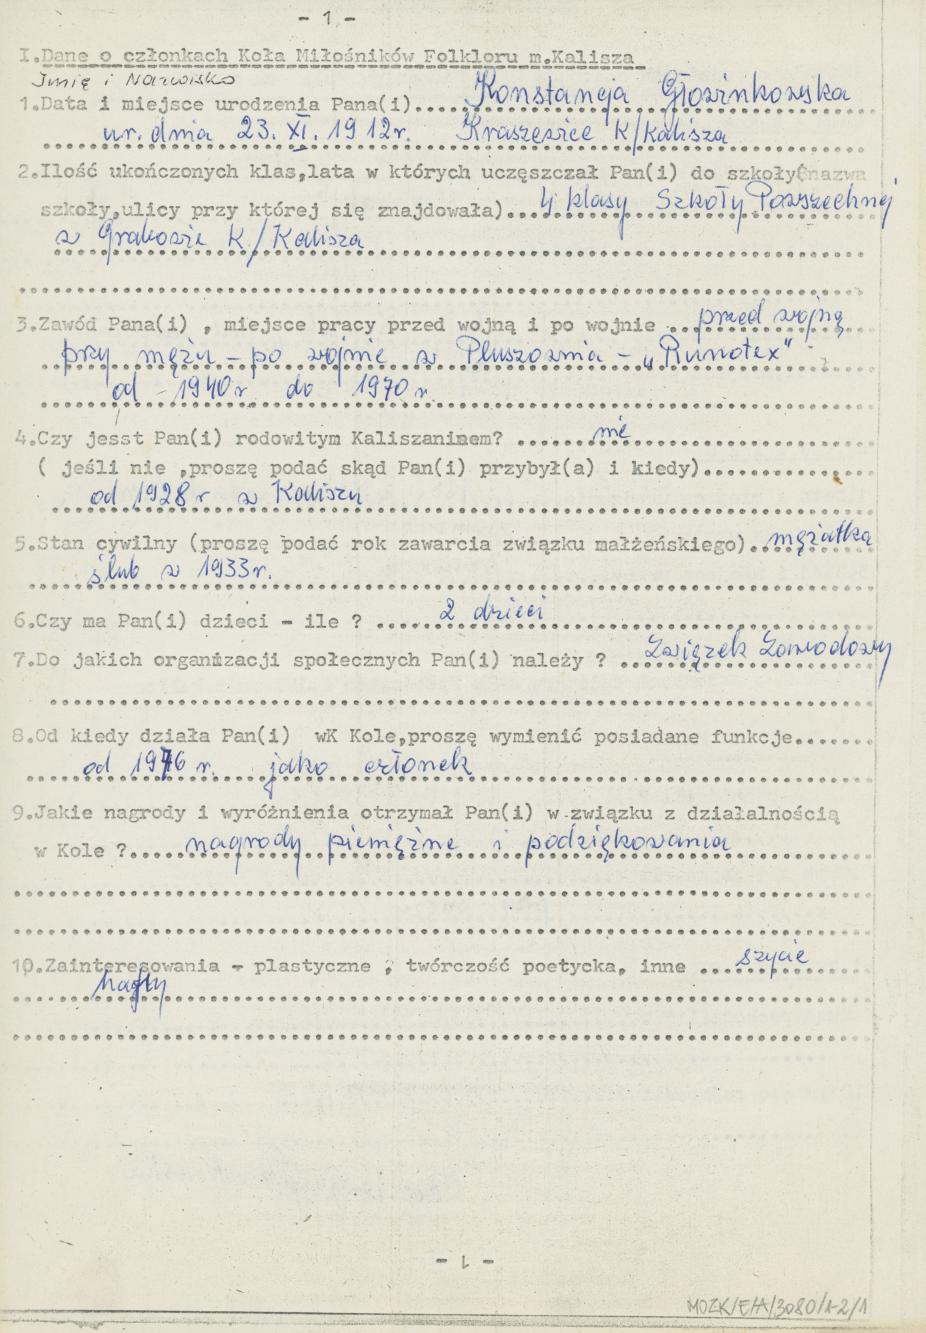 - 1 -
I.Dane o członkach Koła Miłośników Folkloru m.Kalisza
Imię i Nazwisko
1.Data i miejsce urodzenia Pana(i).... Konstancja Głowinkowska
ur. dnia 23. XI. 1912r. Kraszewice K/Kalisza
2.Ilość ukończonych klas,lata w których uczęszczał Pan(i) do szkoły(nazwa
szkoły,ulicy przy której się znajdowała).. 4 klasy Szkoły Powszechnej
w Grakowie K/Kalisza
3.Zawód Pana(i) , miejsce pracy przed wojną i po wojnie .. przed wojną
przy mężu - po wojnie w Pluszownia - „Runotex"
od - 1940r do 1970 r.
4.Czy jesst Pan(i) rodowitym Kaliszaninem? ...... nie
( jeśli nie ,proszę podać skąd Pan(i) przybył(a) i kiedy)............
od 1928 r w Kaliszu
5.Stan cywilny (proszę podać rok zawarcia związku małżeńskiego).. mężatka
ślub w 1933r.
6.Czy ma Pan(i) dzieci - ile ? .... 2 dzieci
7.Do jakich organizacji społecznych Pan(i) należy ? .. Związek Zawodowy
8.Od kiedy działa Pan(i) wK Kole,proszę wymienić posiadane funkcje......
od 1976 r. jako członek
9.Jakie nagrody i wyróżnienia otrzymał Pan(i) w związku z działalnością
w Kole ?.... nagrody pieniężne i podziękowania
10.Zainteresowania - plastyczne , twórczość poetycka, inne ... szycie
hafty
- 1 -
MOZK/E/A/3080/1-2/1